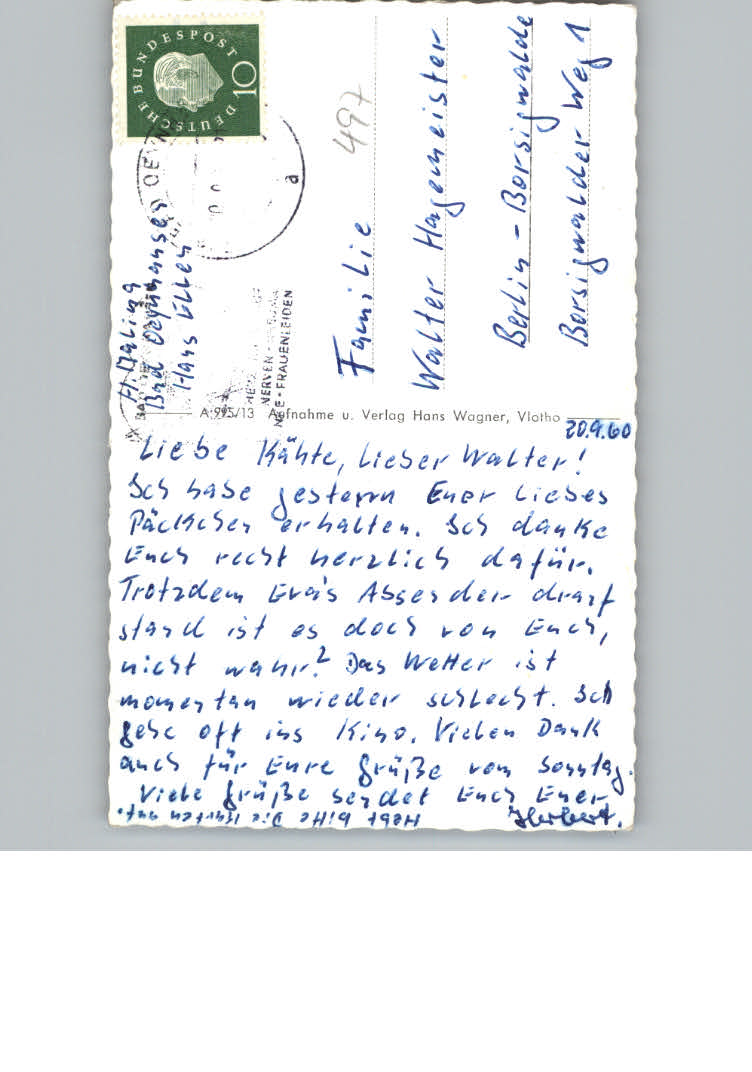 20.9.60
Liebe Kähte, lieber Walter!
Ich habe gestern Euer liebes
Päckchen erhalten. Ich danke
Euch recht herzlich dafür.
Trotzdem Eva's Absender drauf
stand ist es doch von Euch,
nicht wahr? Das Wetter ist
momentan wieder schlecht. Ich
gehe oft ins Kino. Vielen Dank
auch für Eure Grüße vom Sonntag.
Viele Grüße sendet Euch Euer
Herbert.
Hebt bitte die Karten auf.
A 995/13 Aufnahme u. Verlag Hans Wagner, Vlotho
H. Maling
Bad Oeynhausen
Haus Ellen
DEUTSCHE BUNDESPOST
10
OEYN
a
NERVEN
FRAUENLEIDEN
497
Familie
Walter Hagemeister
Berlin-Borsigwalde
Borsigwalder Weg 1